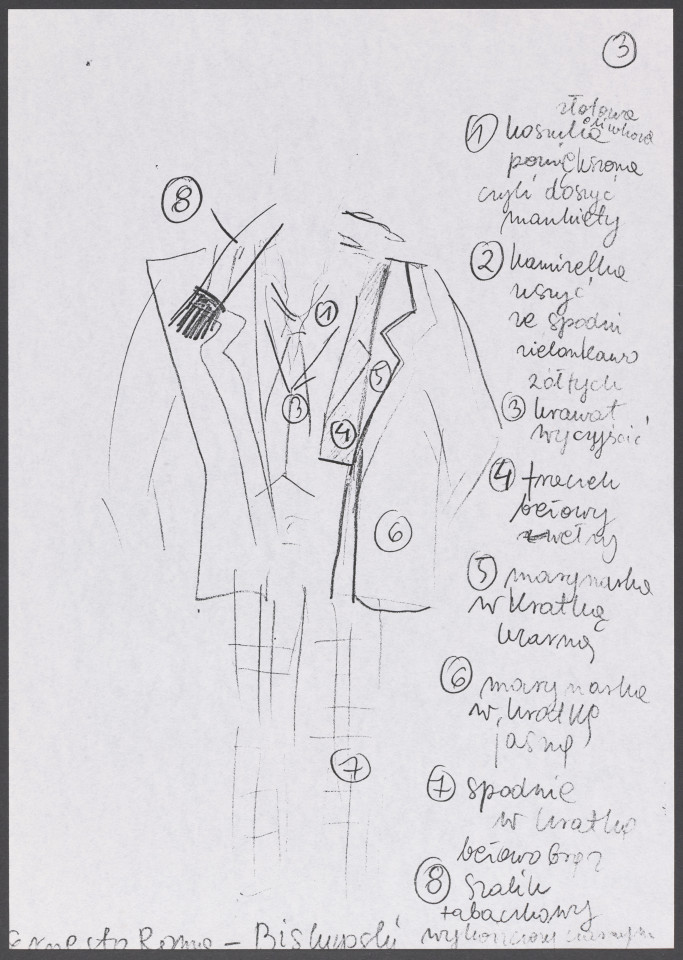 3
złotowa
oliwkowa
1 koszulka
powiększona
czyli doszyć
mankiety
2 kamizelka
uszyć
ze spodni
zielonkawo
żółtych
3 krawat
wyczyścić
4 trencek
beżowy
wełny
5 marynarka
w kratkę
czarną
6 marynarka
w kratkę
jasną
7 spodnie
w kratkę
beżowo brąz
8 szalik
tabaczkowy
wykończony czarnym
8
1
5
3
4
6
7
Ernesto Roma - Biskupski